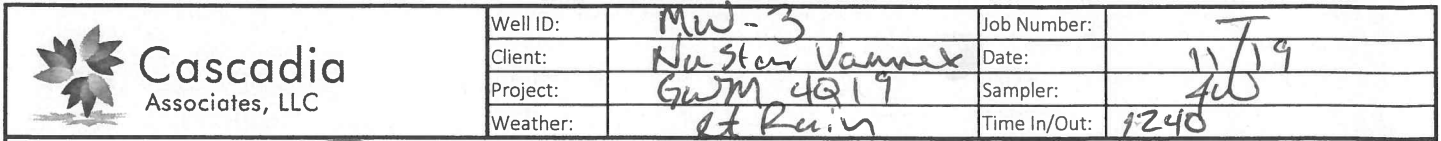 Cascadia
Associates, LLC
Well ID: MW-3 Job Number:
Client: NuStar Vannex Date: 11/19
Project: GWM 4Q19 Sampler:
Weather: Lt Rain Time In/Out: 1240